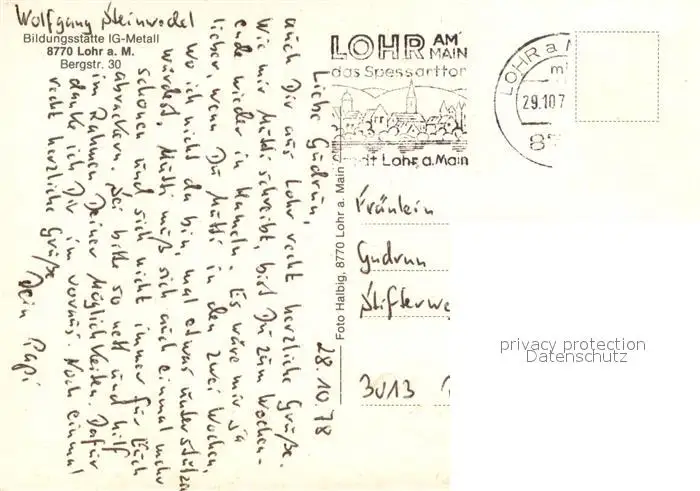 Wolfgang Steinwedel
Bildungsstätte IG-Metall
8770 Lohr a. M.
Bergstr. 30
28.10.78
Liebe Gudrun,
auch Dir aus Lohr recht herzliche Grüße.
Wie mir Mutti schreibt, bist Du zum Wochen-
ende wieder in Hameln. Es wäre mir ja
lieber, wenn Du Mutti in den zwei Wochen,
wo ich nicht da bin, mal etwas unterstützen
würdest. Mutti muß sich auch einmal mehr
schonen und sich nicht immer für Euch
abrackern. Sei bitte so nett und hilf
im Rahmen Deiner Möglichkeiten. Dafür
danke ich Dir im voraus. Noch einmal
recht herzliche Grüße
Dein Papi
Foto Halbig, 8770 Lohr a. Main
LOHR AM MAIN
das Spessarttor
Stadt Lohr a. Main
LOHR a M
29.10.7
87
Fräulein
Gudrun
Stifterwe
3013
privacy protection
Datenschutz